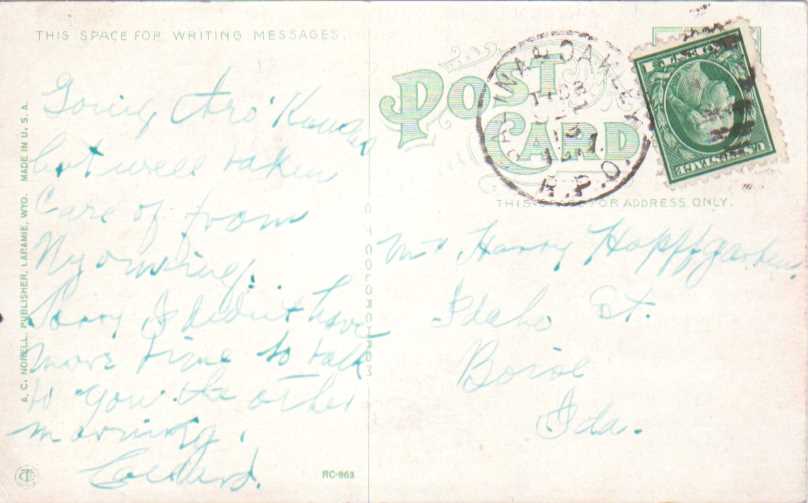 THIS SPACE FOR WRITING MESSAGES.
Going thro' Kansas
but well taken
care of from
Wyoming.
Sorry I didn't have
more time to talk
to you the other
morning.
A. C. NORELL, PUBLISHER, LARAMIE, WYO. MADE IN U. S. A.
RC-963
POST
CARD
& OAKLEY
R.P.O.
THIS FOR ADDRESS ONLY.
U.S. POSTAGE
Mr Harry Hopffgarten,
Idaho St.
Boise
Ida.